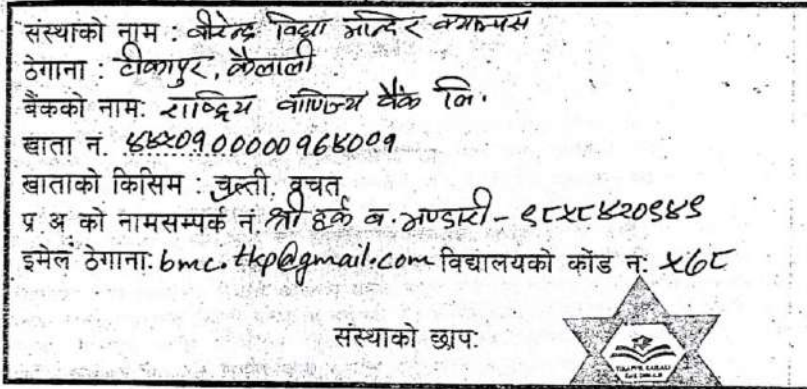 संस्थाको नाम : वीरेन्द्र विद्या मन्दिर क्याम्पस
ठेगाना : टीकापुर, कैलाली
बैंकको नाम: राष्ट्रिय वाणिज्य बैंक लि.
खाता नं.
खाताको किसिम : चल्ती, बचत
प्र.अ को नामसम्पर्क नं. श्री हर्क ब. भण्डारी -
इमेल ठेगाना: bmc.tkp@gmail.com विद्यालयको कोड नं:
संस्थाको छाप: